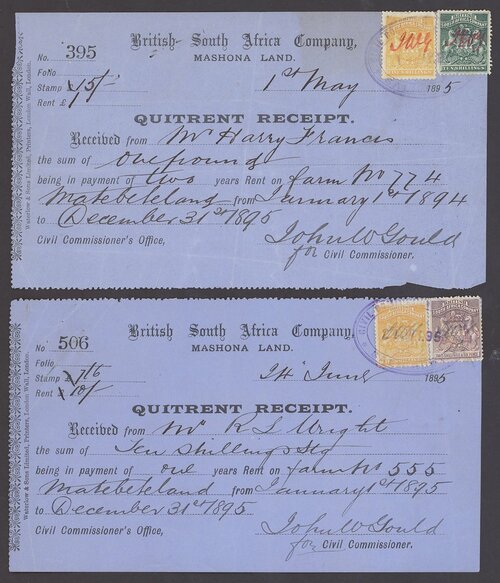 No. 395
British South Africa Company,
MASHONA LAND.
FoNo
Stamp 15/-
Rent £
1st May 1895
QUITRENT RECEIPT.
Received from Mr Harry Francis
the sum of One pound
being in payment of two years Rent on farm No 774
Matebeleland from January 1st 1894
to December 31st 1895
Civil Commissioner's Office,
John W Gould
for Civil Commissioner.
Waterlow & Sons Limited, Printers, London Wall, London.
TEN SHILLINGS
No 506
British South Africa Company,
MASHONA LAND.
Folio
Stamp £ 7/6
Rent £ 10/-
June 1895
QUITRENT RECEIPT.
Received from Mr R L Wright
the sum of Ten Shillings Stg
being in payment of one years Rent on farm No 555
Matebeleland from January 1st 1895
to December 31st 1895
Civil Commissioner's Office,
John W Gould
for Civil Commissioner.
Waterlow & Sons Limited, Printers, London Wall, London.